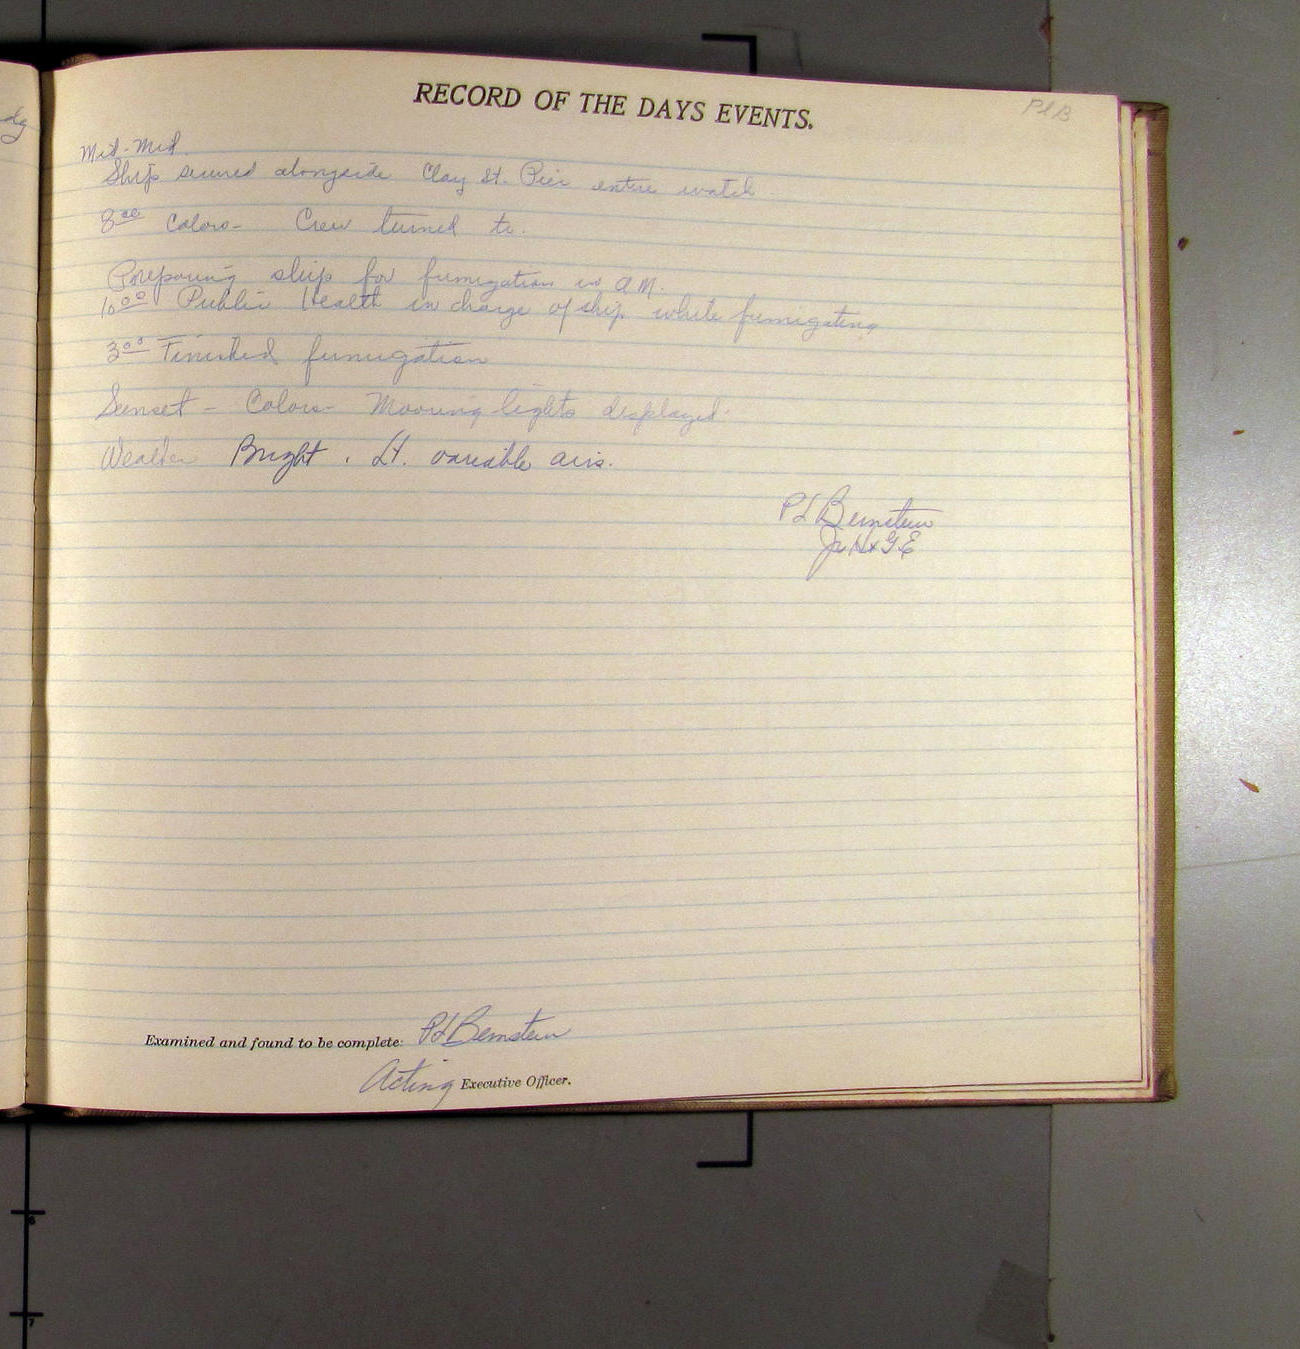 RECORD OF THE DAYS EVENTS.
PLB
Mid-Mid.
Ship secured alongside Clay St. Pier entire watch
800 Colors- Crew turned to.
Preparing ship for fumigation in AM.
1000 Public Health in charge of ship while fumigating
300 Finished fumigation
Sunset - Colors- Mooring lights displayed.
Weather Bright. Lt. variable airs.
PL Bernstein
Jr H & G E
Examined and found to be complete: PL Bernstein
Acting Executive Officer.
6
7